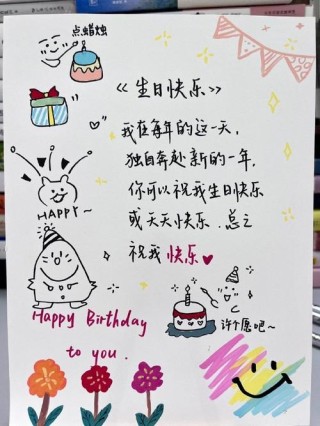 点蜡烛
《生日快乐》
我在每年的这一天，
独自奔赴新的一年，
你可以祝我生日快乐
或天天快乐.总之
祝我快乐
HAPPY~
许个愿吧~
Happy Birthday
to you.